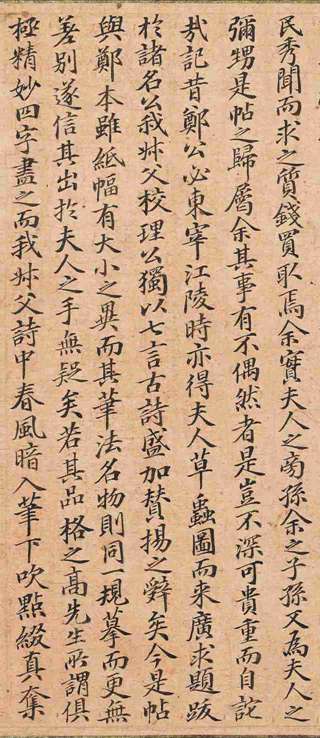 民秀聞而求之質錢買取焉余實夫人之旁孫余之子孫又爲夫人之
彌甥是帖之歸屬余其事有不偶然者是豈不深可貴重而自詫
哉記昔鄭公必東宰江陵時亦得夫人草蟲圖而来廣求題跋
於諸名公我叔父校理公獨以七言古詩盛加賛揚之辤矣今是帖
與鄭本雖紙幅有大小之異而其筆法名物則同一規摹而更無
差別遂信其出於夫人之手無疑矣若其品格之高先生所謂俱
極精妙四字盡之而我叔父詩中春風暗入筆下吹點綴真奪